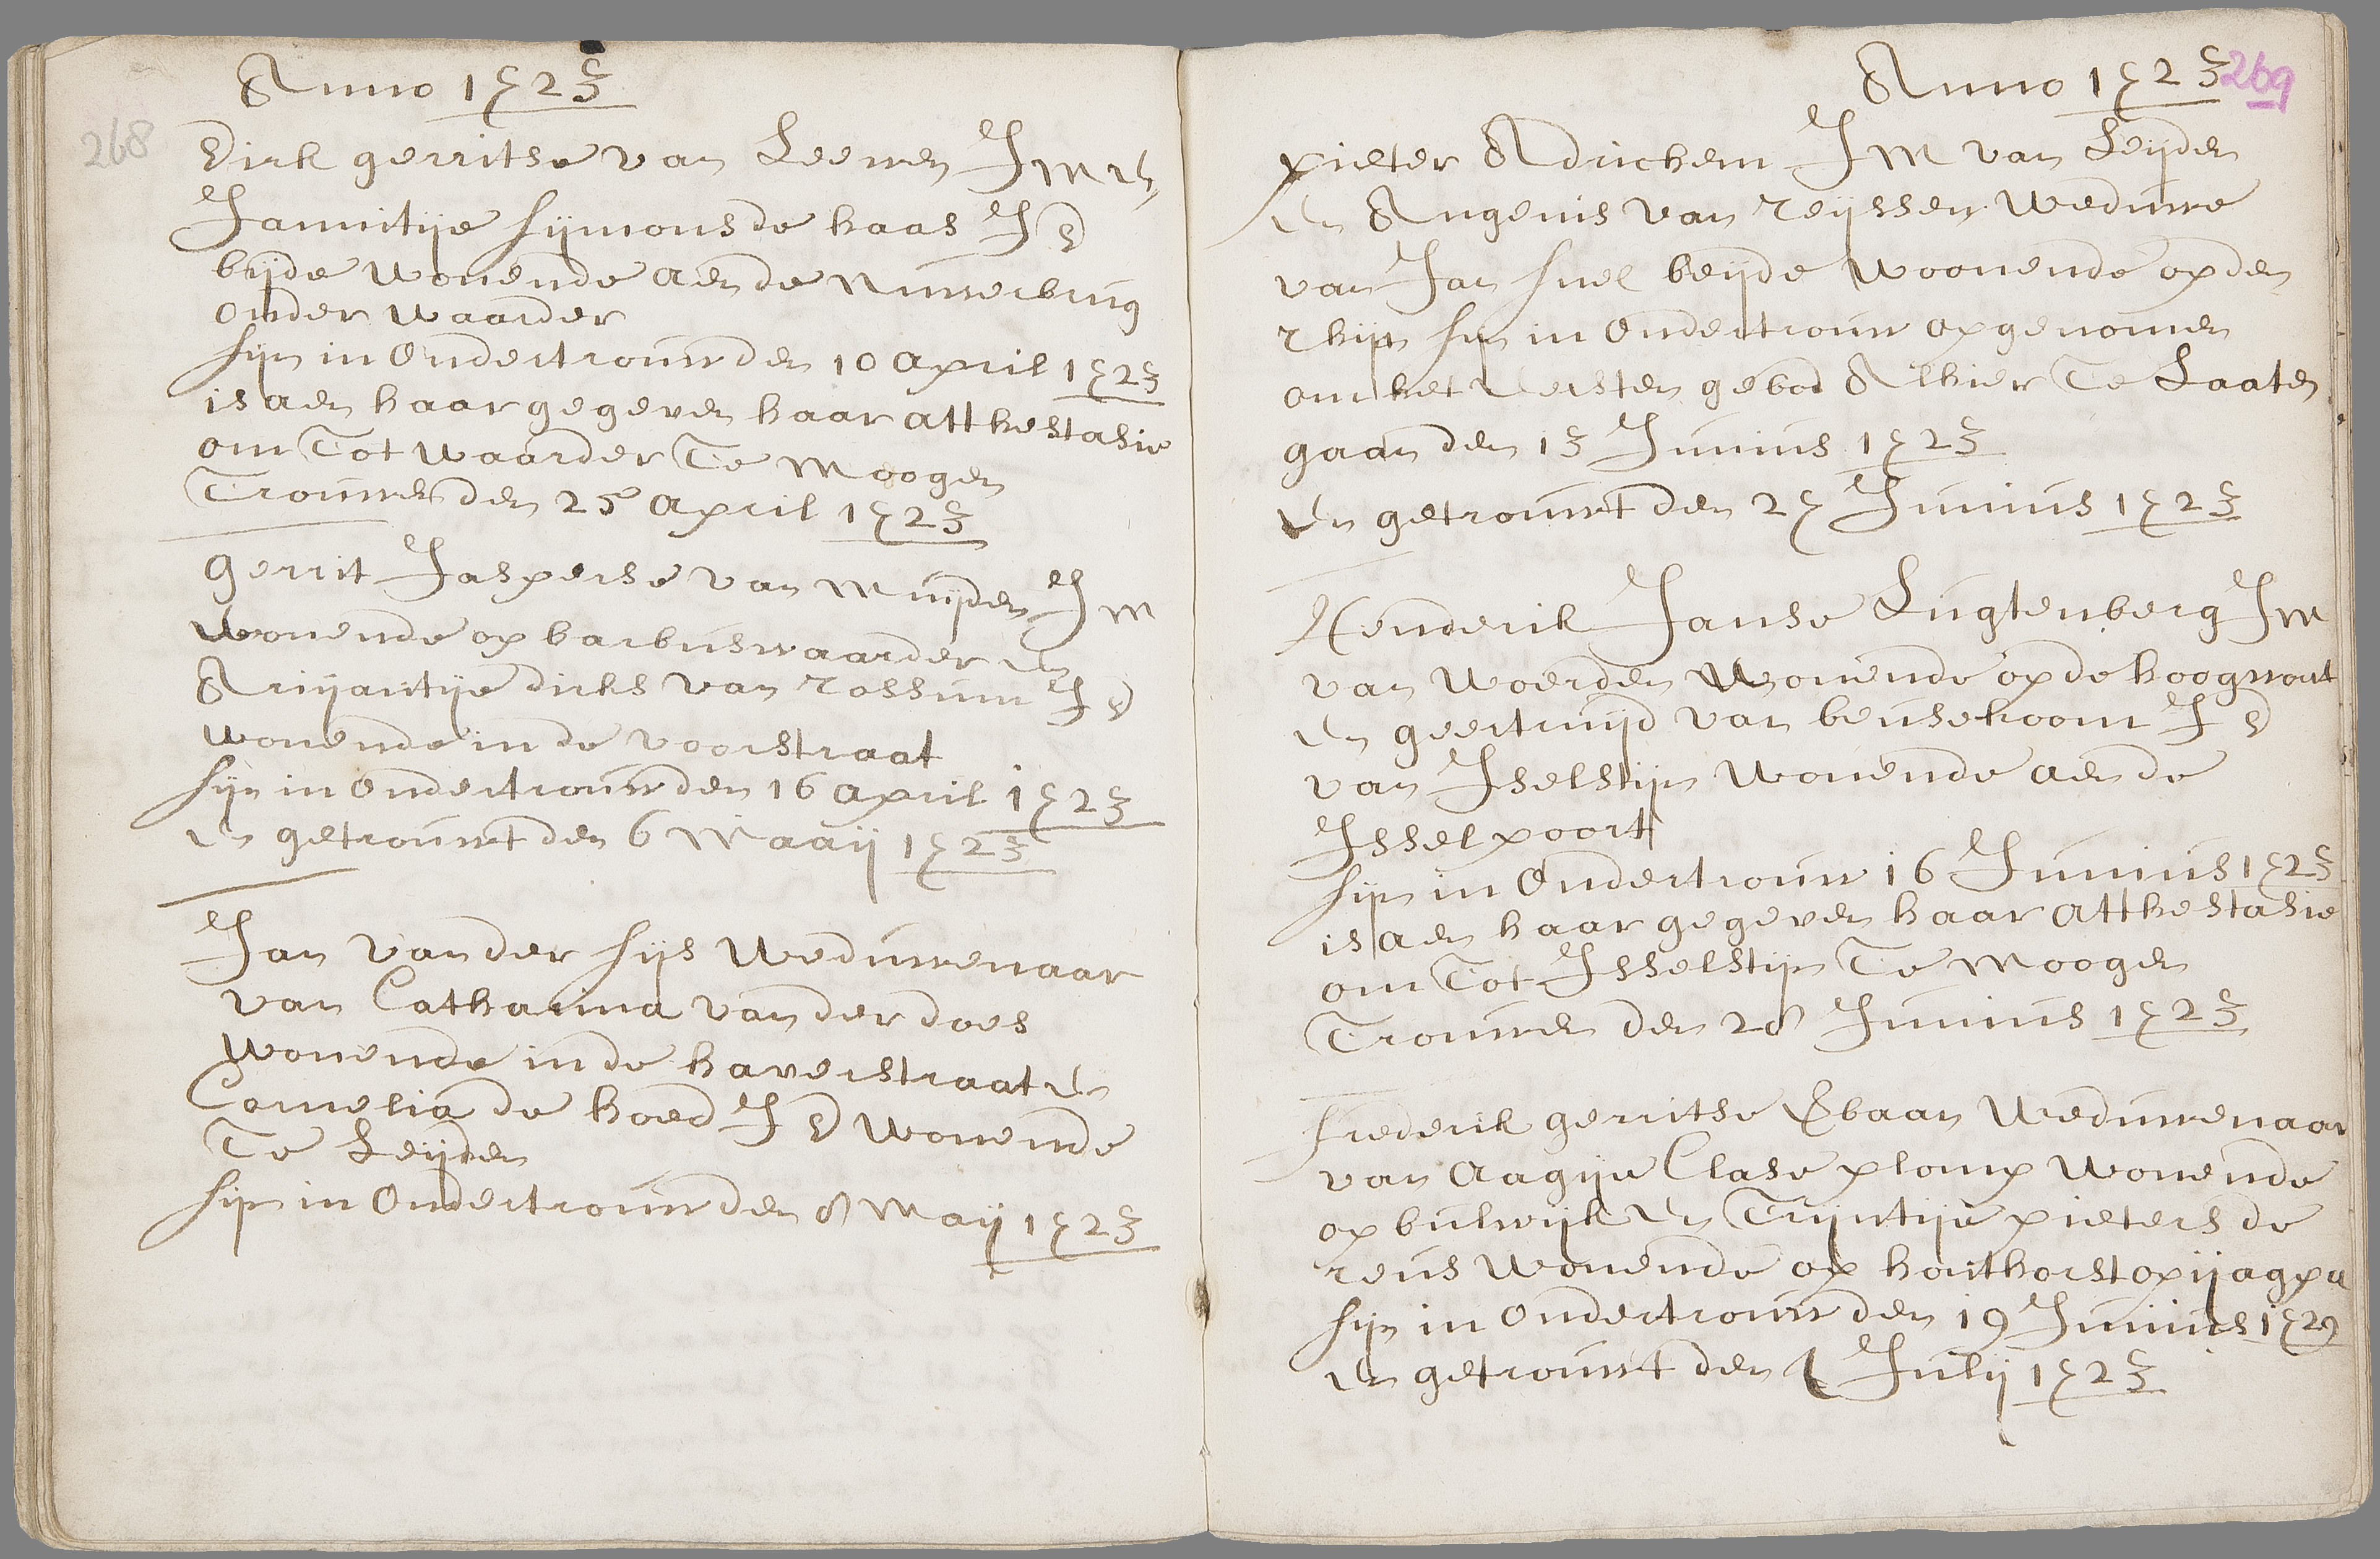 Anno 1723
268
Dirk gerritse van Leewen JM en
Jannitije sijmons de haas JD
beijde wonende aen de Nuwerbrug
onder waarder
sijn in Ondertrouw den 10 april 1723
is aen haar gegeven haar atthestasie
om Tot waarder Te moogen
Trouwen den 25 april 1723
gerrit Jasperse van muijden JM
wonende op barbuswaarder en
Arijantije dirks van rossum JD
wonende in de voorstraat
sijn in Ondertrouw den 16 april 1723
en getrouwt den 6 Maaij 1723
Jan van der sijs weduwenaar
van Catharina van der does
wonende in de haverstraat en
Cornelia de hoed JD wonende
Te Leijden
sijn in Ondertrouw den 8 Maij 1723
Anno 1723
269
pieter Adrichem JM van Leijden
en Angenis van reijssen weduwe
van Jan snel beijde woonende op den
rhijn sijn in Ondertrouw op genomen
om het eersten gebod Alhier Te Laaten
gaan den 13 Junius 1723
en getrouwt den 27 Junius 1723
Henderik Janse Lugtenberg JM
van woerden wonende op de hoogwout
en geertruijd van beusekoom JD
van Iselstijn wonende aen de
Isselpoort
sijn in Ondertrouw 16 Junius 1723
is aen haar gegeven haar atthestasie
om Tot Isselstijn Te moogen
Trouwen den 28 Junius 1723
frederik gerritse baan weduwenaar
van aagije Clase plomp wonende
op bulwijk en Trijntije pieters de
reus wonende op houthorst op ijagpa
sijn in Ondertrouw den 19 Junius 1723
en getrouwt den Julij 1723